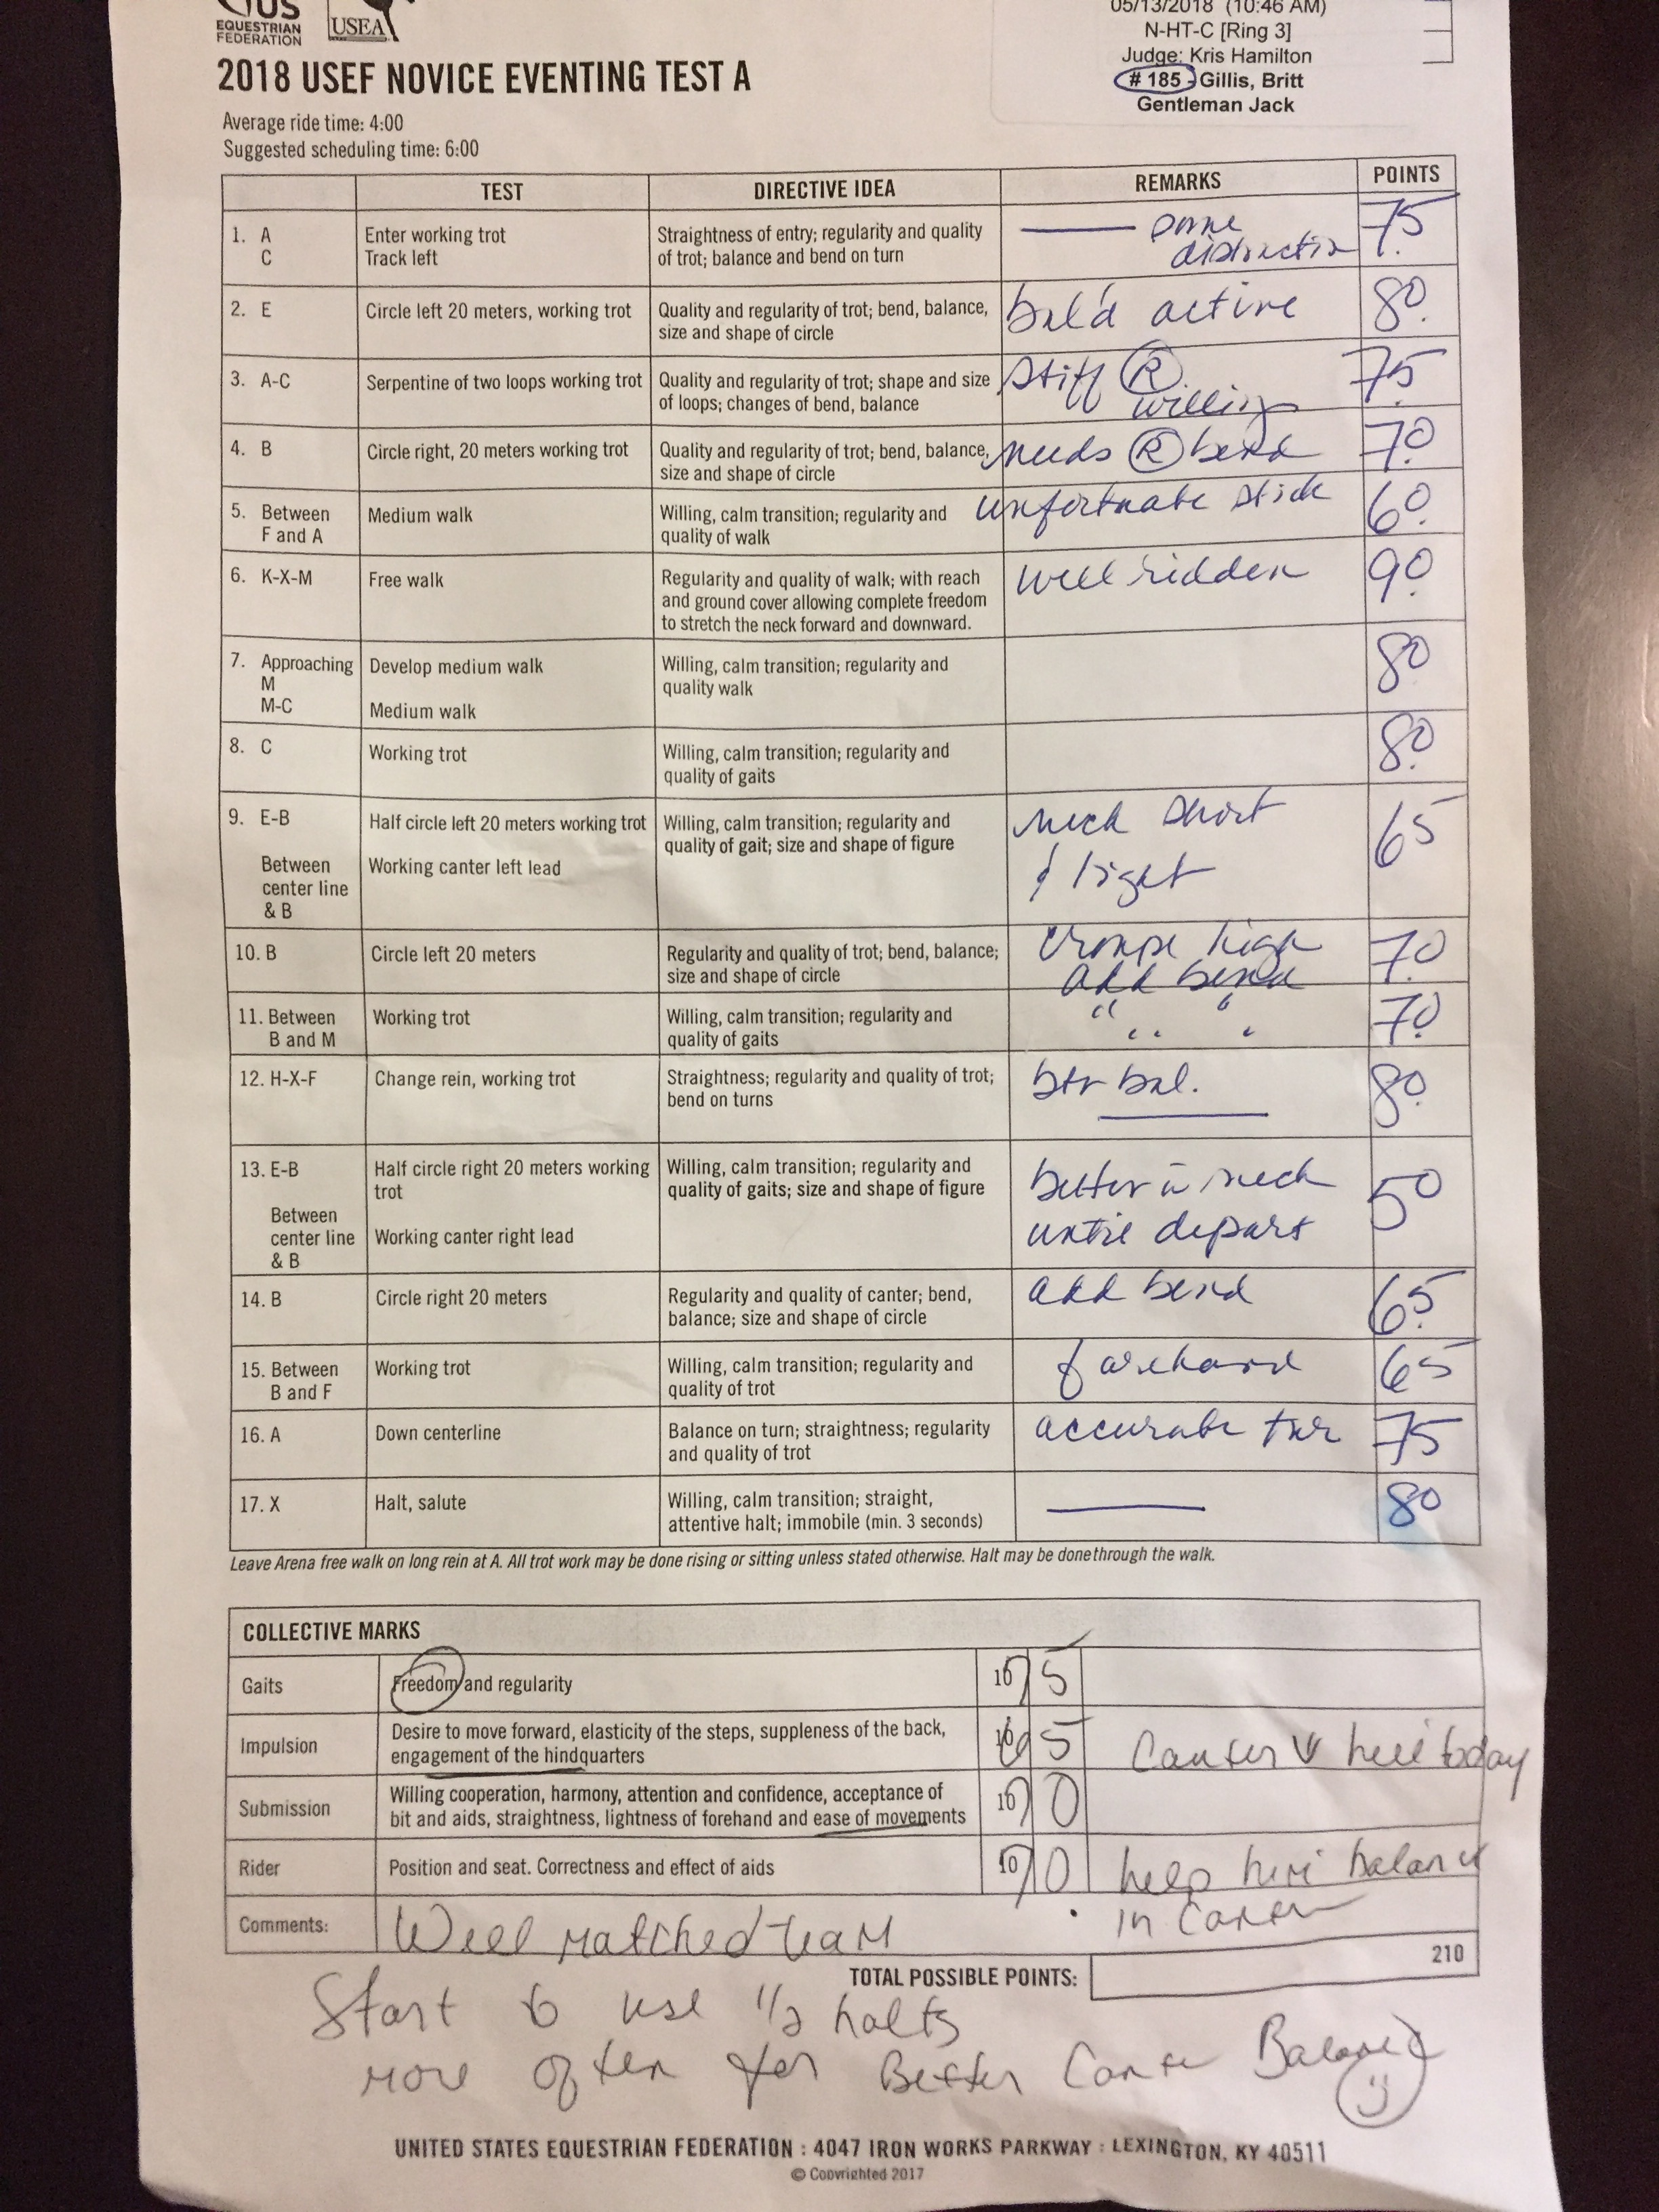 US
EQUESTRIAN
FEDERATION
USEA
2018 USEF NOVICE EVENTING TEST A
Average ride time: 4:00
Suggested scheduling time: 6:00
05/13/2018 (10:46 AM)
N-HT-C [Ring 3]
Judge: Kris Hamilton
# 185 - Gillis, Britt
Gentleman Jack
TEST DIRECTIVE IDEA REMARKS POINTS
1. A Enter working trot Straightness of entry; regularity and quality some 7.5
C Track left of trot; balance and bend on turn distraction
2. E Circle left 20 meters, working trot Quality and regularity of trot; bend, balance, bal'd active 8.0
size and shape of circle
3. A-C Serpentine of two loops working trot Quality and regularity of trot; shape and size stiff R 7.5
of loops; changes of bend, balance willing
4. B Circle right, 20 meters working trot Quality and regularity of trot; bend, balance, needs R bend 7.0
size and shape of circle
5. Between Medium walk Willing, calm transition; regularity and unfortunate stick 6.0
F and A quality of walk
6. K-X-M Free walk Regularity and quality of walk; with reach well ridden 9.0
and ground cover allowing complete freedom
to stretch the neck forward and downward.
7. Approaching Develop medium walk Willing, calm transition; regularity and 8.0
M quality walk
M-C Medium walk
8. C Working trot Willing, calm transition; regularity and 8.0
quality of gaits
9. E-B Half circle left 20 meters working trot Willing, calm transition; regularity and neck short 65
quality of gait; size and shape of figure
Between Working canter left lead & tight
center line
& B
10. B Circle left 20 meters Regularity and quality of trot; bend, balance; croupe high 7.0
size and shape of circle add bend
11. Between Working trot Willing, calm transition; regularity and " " 7.0
B and M quality of gaits " "
12. H-X-F Change rein, working trot Straightness; regularity and quality of trot; btr bal. 8.0
bend on turns
13. E-B Half circle right 20 meters working Willing, calm transition; regularity and better in neck 50
trot quality of gaits; size and shape of figure
Between until depart
center line Working canter right lead
& B
14. B Circle right 20 meters Regularity and quality of canter; bend, add bend 6.5
balance; size and shape of circle
15. Between Working trot Willing, calm transition; regularity and forehand 65
B and F quality of trot
16. A Down centerline Balance on turn; straightness; regularity accurate 75
and quality of trot
17. X Halt, salute Willing, calm transition; straight, 80
attentive halt; immobile (min. 3 seconds)
Leave Arena free walk on long rein at A. All trot work may be done rising or sitting unless stated otherwise. Halt may be donethrough the walk.
COLLECTIVE MARKS
Gaits Freedom and regularity 10 7 5
Impulsion Desire to move forward, elasticity of the steps, suppleness of the back, 10 6 5 Canter
engagement of the hindquarters today
Submission Willing cooperation, harmony, attention and confidence, acceptance of 10 7 0
bit and aids, straightness, lightness of forehand and ease of movements
Rider Position and seat. Correctness and effect of aids 10 7 0 help him balance
in Canter
Comments: Well matched team
210
TOTAL POSSIBLE POINTS:
Start to use 1/2 halts
more often for Better Canter Balance
UNITED STATES EQUESTRIAN FEDERATION : 4047 IRON WORKS PARKWAY : LEXINGTON, KY 40511
© Copyrighted 2017